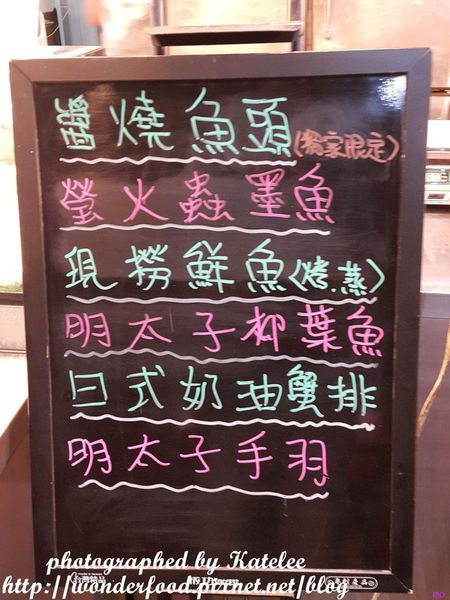 鹽燒魚頭(獨家限定)
螢火蟲墨魚
現撈鮮魚(烤.蒸)
明太子柳葉魚
日式奶油蟹排
明太子手羽
台灣精品
photographed by Katelee
http://wonderfood.pixnet.net/blog